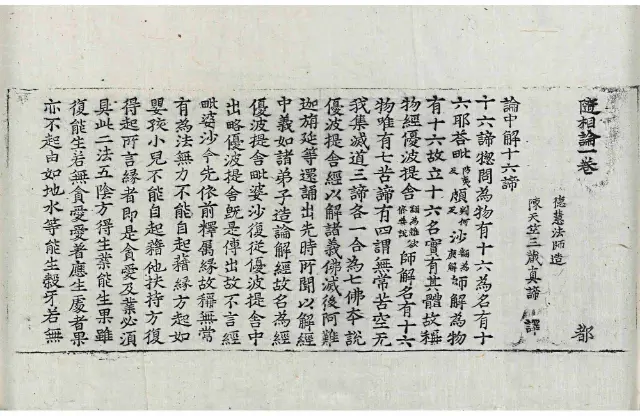 隨相論一卷
都
德慧法師造
陳天竺三藏真諦譯
論中解十六諦
十六諦揔問為物有十六為名有十
六耶荅毗婆沙師解為物
有十六故立十六名實有其體故稱
物經優波提舍師解名有十六
物唯有七苦諦有四謂無常苦空无
我集滅道三諦各一合為七佛夲說
優波提舍經以解諸義佛滅後阿難
迦旃延等還誦出先時所聞以解經
中義如諸弟子造論解經故名為經
優波提舍毗婆沙復從優波提舍中
出略優波提舍旣是傳出故不言經
毗婆沙今先依前釋属緣故稱無常
有為法無力不能自起藉緣方起如
嬰孩小兒不能自起藉他扶持方復
得起所言緣者即是貪愛及業必湏
具此二法五陰方得生業能生果雖
復能生若無貪愛愛者應生處者果
亦不起由如地水等能生糓牙若無